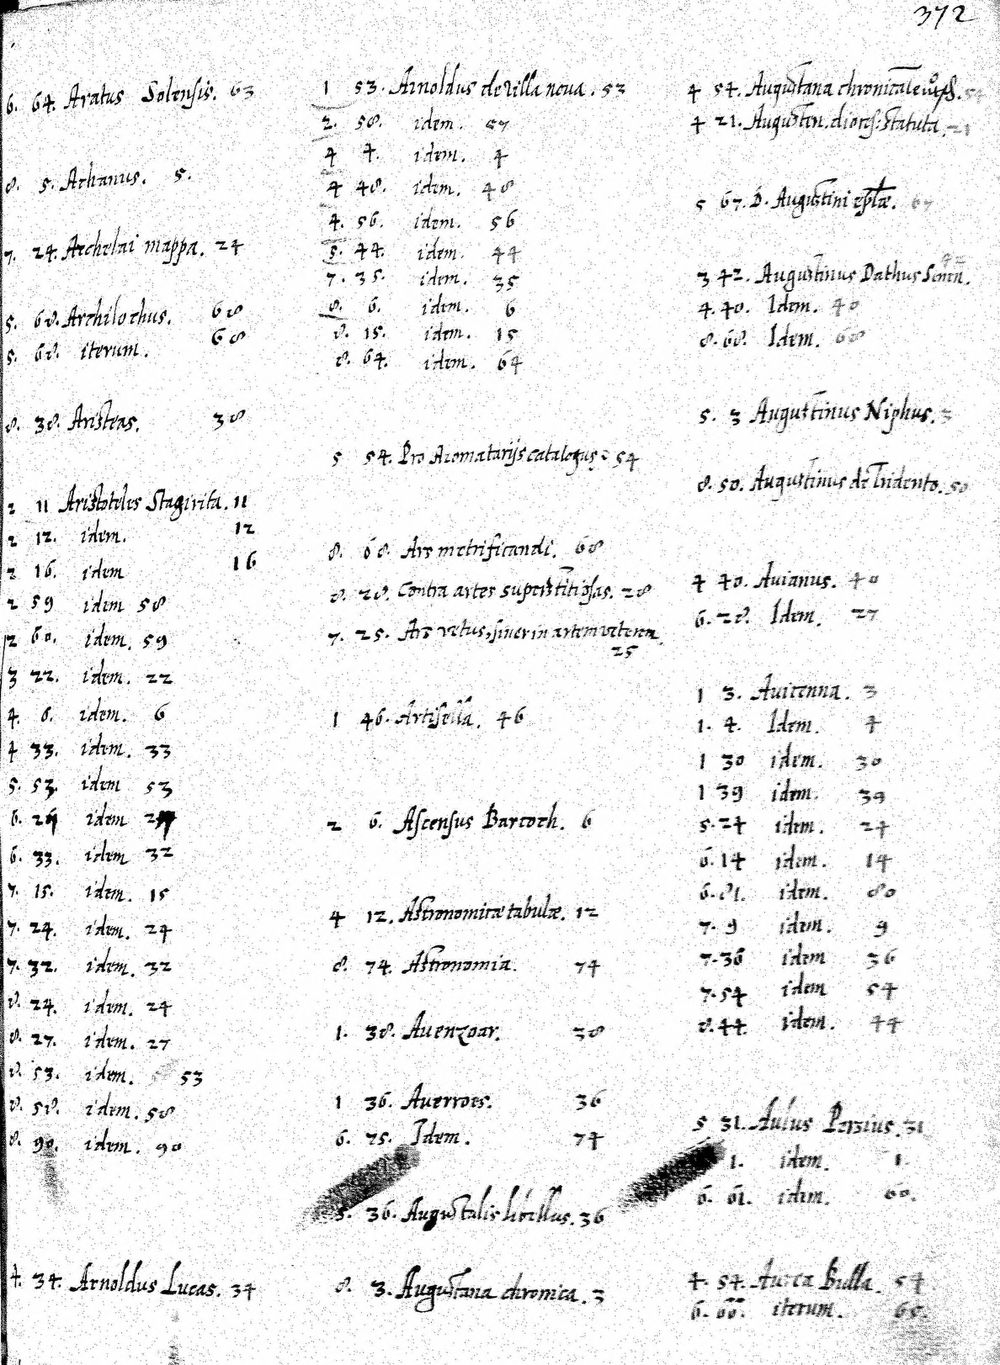 372
6. 64. Aratus Solensis. 63
8. 5. Archanus. 5.
7. 24. Archelai mappa. 24
5. 68. Archilochus. 68
5. 68. iterum. 68
8. 38. Aristeas. 38
2 11 Aristoteles Stagirita. 11
2 12. idem. 12
2 16. idem 16
2 59 idem 58
2 60. idem. 59
3 22. idem. 22
4. 6. idem. 6
4 33. idem. 33
5. 53. idem 53
6. idem
6. 33. idem 32
7. 15. idem. 15
7. 24. idem. 24
7. 32. idem. 32
8. 24. idem. 24
8. 27. idem. 27
8. 53. idem. 53
8. 58. idem. 58
8. 90. idem. 90
4. 34. Arnoldus Lucas. 34
1 53. Arnoldus de villa nova. 53
2. 58. idem. 57
4 4. idem. 4
4 48. idem. 48
4. 56. idem. 56
5. 44. idem. 44
7. 35. idem. 35
8. 6. idem. 6
8. 15. idem. 15
8. 64. idem. 64
5 54. Pro Aromatarijs catalogus. 54
8. 68. Ars metrificandi. 68
8. 28. Contra artes superstitiosas. 28
7. 25. Ars vetus, in artem veterem
25
1 46. Artisella. 46
2 6. Ascensus Bartoch. 6
4 12. Astronomicæ tabulæ. 12
8. 74. Astronomia. 74
1. 38. Auenzoar. 38
1 36. Auerroes. 36
6. 75. Idem. 74
5. 36. Augustalis libellus. 36
8. 3. Augustana chronica. 3
4 54. Augustana chronicale 54
4 21. Augusten. dioces: statuta. 21
5 67. D. Augustini eplæ. 67
3 42. Augustinus Dathus Senen. 42
4. 40. Idem. 40
8. 68. Idem. 68
5. 3 Augustinus Niphus. 3
8. 50. Augustinus de Tridento. 50
4 40. Auianus. 40
6. 28. Idem. 27
1 3. Auicenna. 3
1. 4. Idem. 4
1 30 idem. 30
1 39 idem. 39
5. 24 idem. 24
6. 14 idem. 14
6. 81. idem. 80
7. 9 idem. 9
7. 36 idem 36
7. 54 idem 54
8. 44. idem. 44
5 31. Aulus Persius. 31
1. idem. 1.
6. 61. idem. 60.
4. 54. Aurea Bulla. 54
6. 66. iterum. 65.